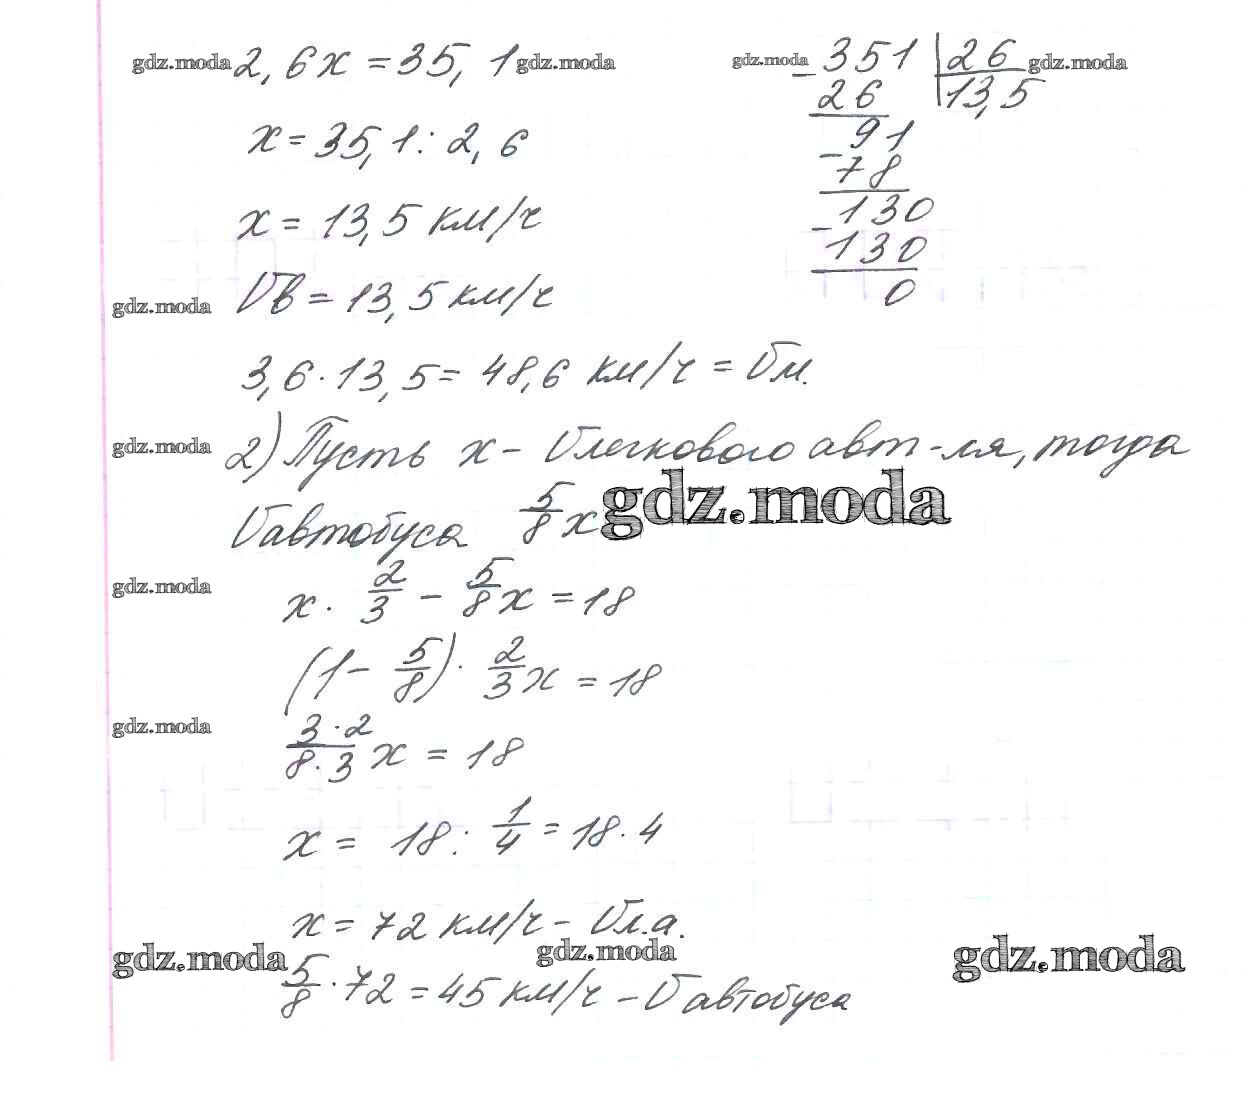 gdz.moda 2,6x = 35,1 gdz.moda
x = 35,1 : 2,6
x = 13,5 км/ч
gdz.moda Vв = 13,5 км/ч
gdz.moda 351 | 26 gdz.moda
- 26 13,5
91
- 78
130
- 130
0
3,6 · 13,5 = 48,6 км/ч = Vм.
gdz.moda 2) Пусть x - Vлегкового авт-ля, тогда
Vавтобуса 5/8 x gdz.moda
gdz.moda x · 2/3 - 5/8 x = 18
(1 - 5/8) · 2/3 x = 18
gdz.moda 3·2/8·3 x = 18
x = 18 : 1/4 = 18 · 4
x = 72 км/ч - Vл.а.
gdz.moda gdz.moda gdz.moda
5/8 · 72 = 45 км/ч - Vавтобуса